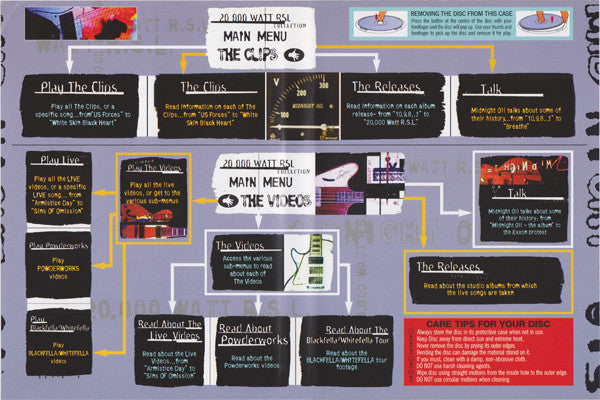 20,000 WATT RSL
COLLECTION
MAIN MENU
THE CLIPS
REMOVING THE DISC FROM THIS CASE
Press the button at the centre of the disc with your
forefinger and the disc will pop up. Use your thumb and
forefinger to pick up the disc and remove it for play.
Play The Clips
Play all The Clips, or a
specific song...from "US Forces" to
"White Skin Black Heart"
The Clips
Read information on each of The
Clips ...from "US Forces" to "White
Skin Black Heart"
V
100
200
300
MIDNIGHT OIL
The Releases
Read information on each album
release- from "10,9,8...1" to
"20,000 Watt R.S.L"
Talk
Midnight Oil talks about some of
their history...from "10,9,8...1" to
"Breathe"
20,000 WATT RSL
COLLECTION
MAIN MENU
THE VIDEOS
Play Live
Play all the LIVE
videos, or a specific
LIVE song... from
"Armistice Day" to
"Sins Of Omission"
Play The Videos
Play all the live
videos, or get to the
various sub-menus
Talk
Midnight Oil talks about some
of their history, from
"Midnight Oil - the album" to
the Exxon protest
Play Powderworks
Play
POWDERWORKS
videos
The Videos
Access the various
sub-menus to read
about each of
The Videos
The Releases
Read about the studio albums from which
the live songs are taken
Play
Blackfella/Whitefella
Play
BLACKFELLA/WHITEFELLA
videos
Read About The
Live Videos
Read about the Live
Videos...from
"Armistice Day" to
"Sins Of Omission"
Read About
Powderworks
Read about the
Powderworks videos
Read About The
Blackfella/Whitefella Tour
Read about the
BLACKFELLA/WHITEFELLA tour
footage
20,000 WATT R.S.L.
CARE TIPS FOR YOUR DISC
Always store the disc in its protective case when not in use.
Keep Disc away from direct sun and extreme heat.
Never remove the disc by prying its outer edges.
Bending the disc can damage the material stored on it.
If you must, clean with a damp, non-abrasive cloth.
DO NOT use harsh cleaning agents.
Wipe disc using straight motions from the inside hole to the outer edge.
DO NOT use circular motions when cleaning